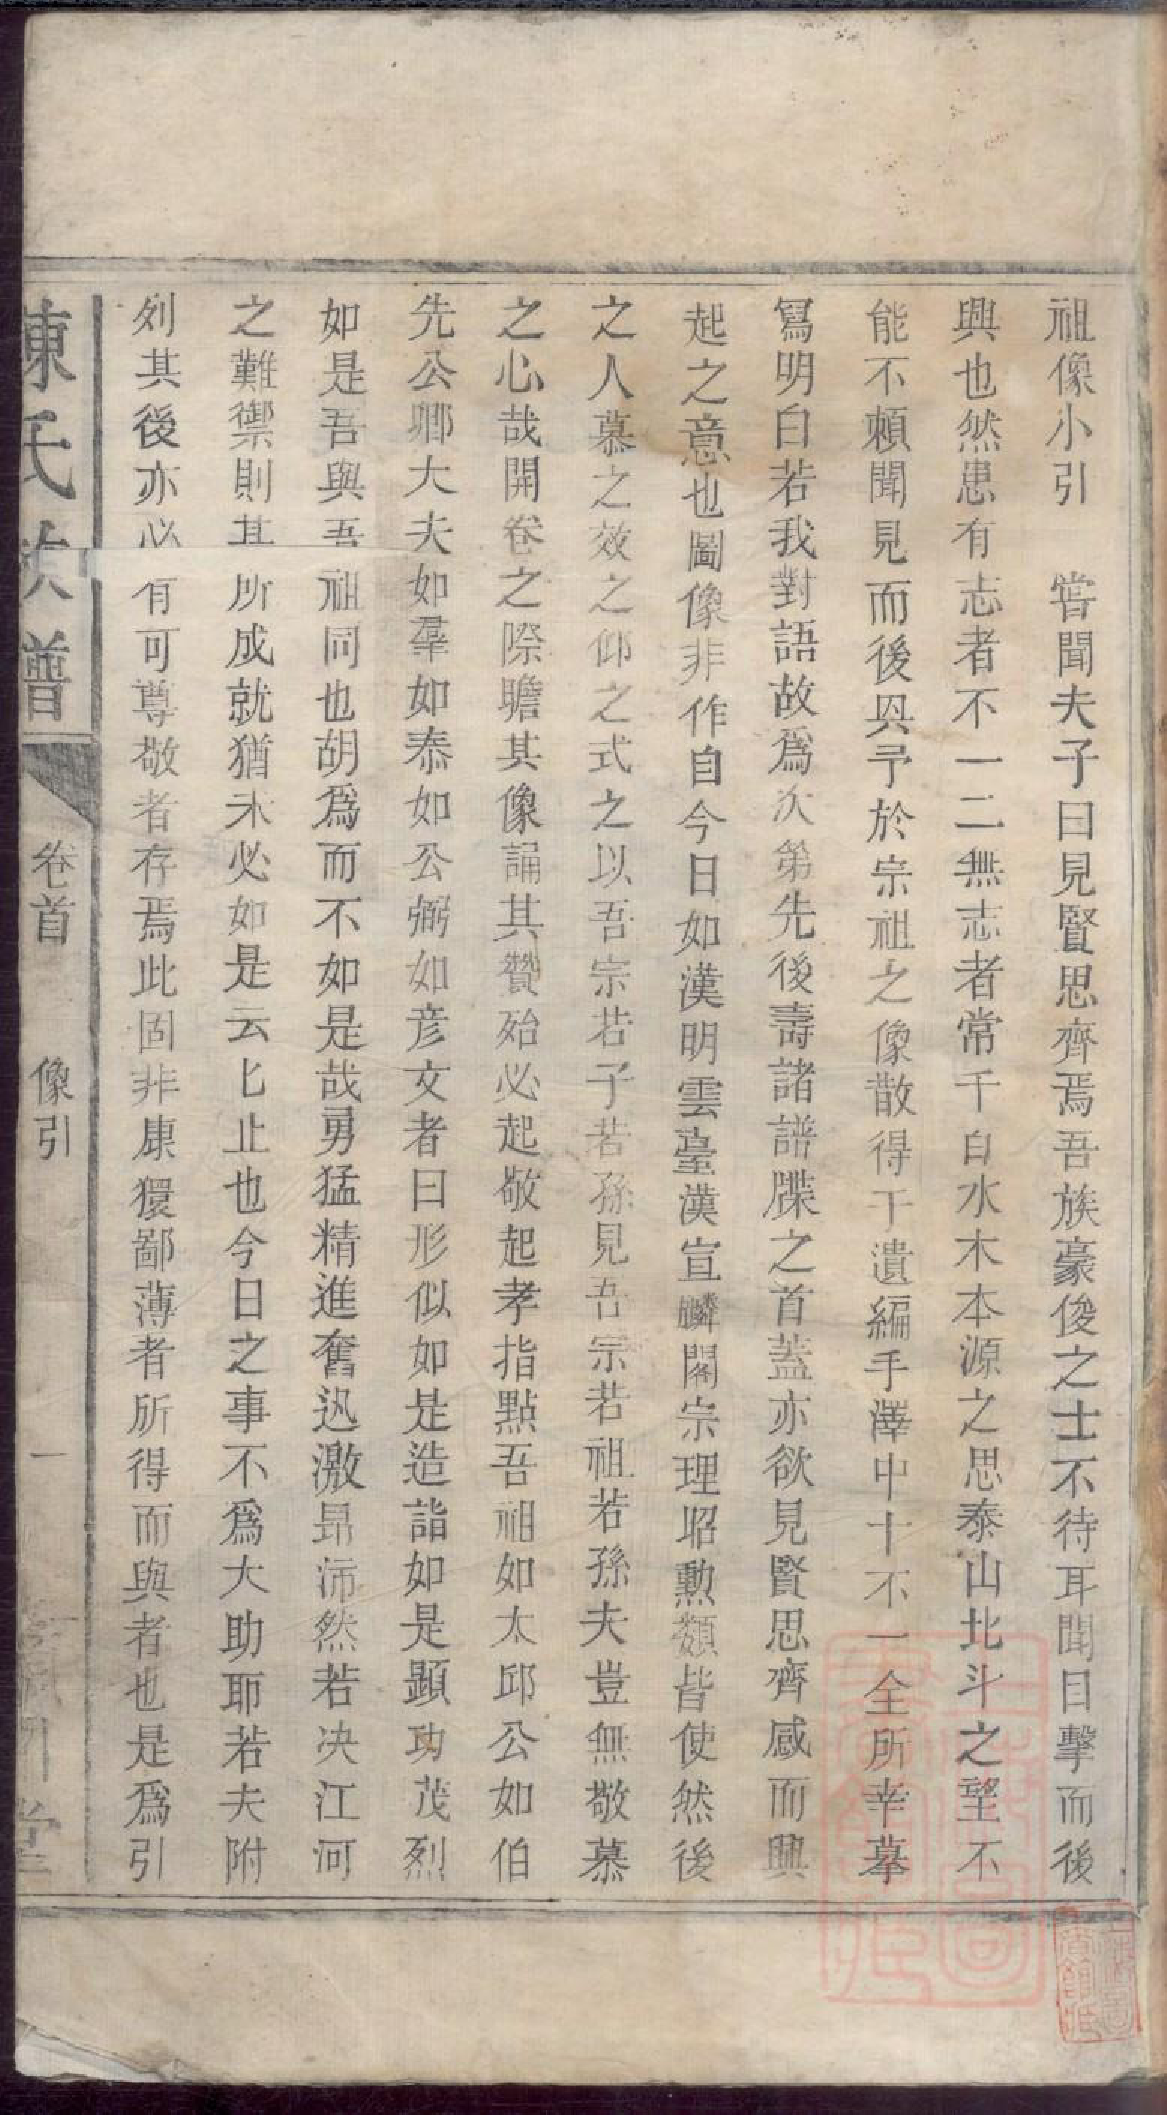 祖像小引　甞聞夫子曰見賢思齊焉吾族豪俊之士不待耳聞目擊而後
興也然患有志者不一二無志者常千百水木本源之思泰山北斗之望不
能不頼聞見而後與予於宗祖之像散得于遺編手澤中十不一全所幸摹
寫明白若我對語故爲次第先後壽諸譜牒之首蓋亦欲見賢思齊感而興
起之意也圖像非作自今日如漢明雲臺漢宣麟閣宗理昭勲類皆使然後
之人慕之效之仰之式之以吾宗若子若孫見吾宗若祖若孫夫豈無敬慕
之心哉開卷之際瞻其像誦其贊殆必起敬起孝指點吾祖如太邱公如伯
先公卿大夫如羣如泰如公弼如彦文者曰形似如是造詣如是顯功茂烈
如是吾與吾祖同也胡爲而不如是哉勇猛精進奮迅激昻沛然若决江河
之難禦則其所成就猶未必如是云匕止也今日之事不爲大助耶若夫附
列其後亦必有可尊敬者存焉此固非康獶鄙薄者所得而與者也是爲引
陳氏族譜
卷首
像引
一
堂